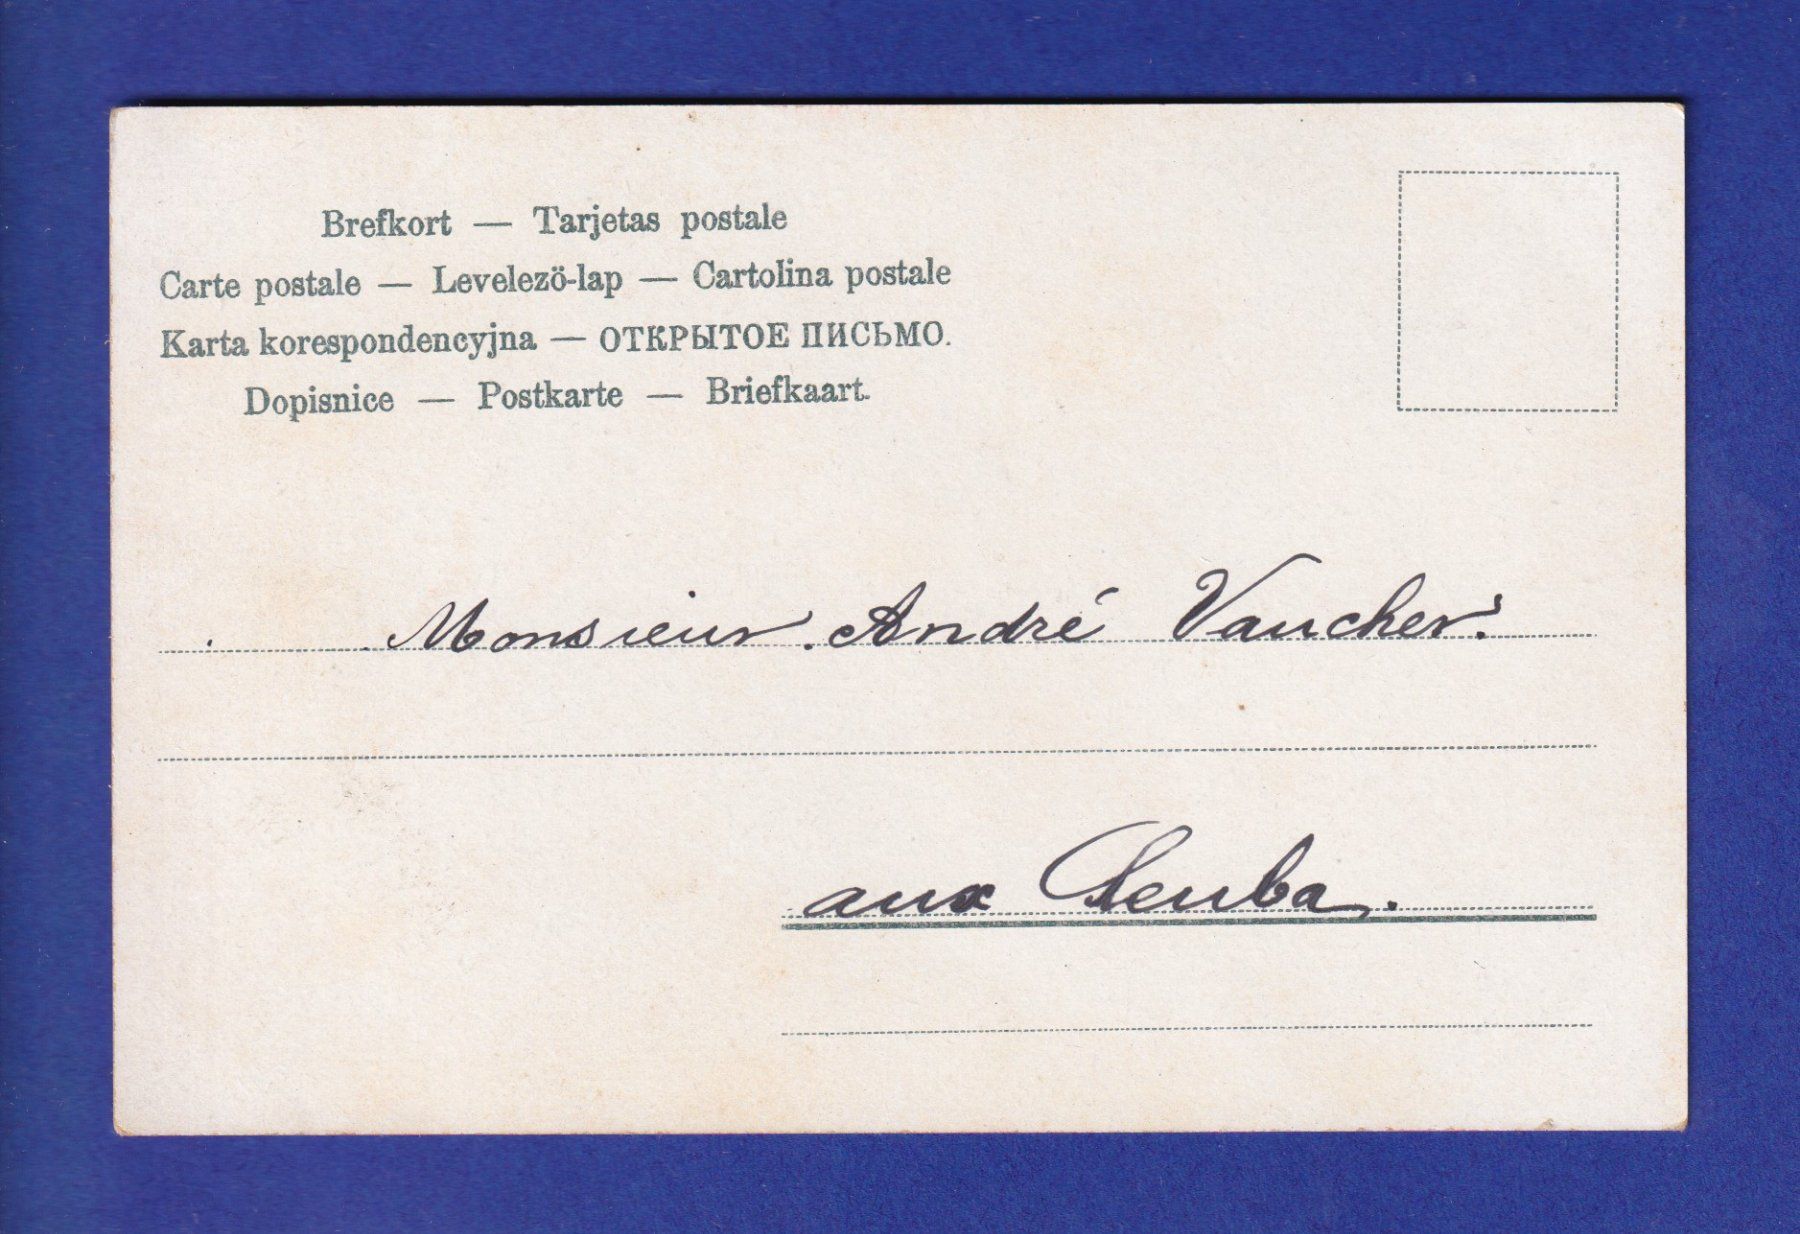 Brefkort — Tarjetas postale
Carte postale — Levelező-lap — Cartolina postale
Karta korespondencyjna — ОТКРЫТОЕ ПИСЬМО.
Dopisnice — Postkarte — Briefkaart.
Monsieur André Vaucher.
aux Leuba.